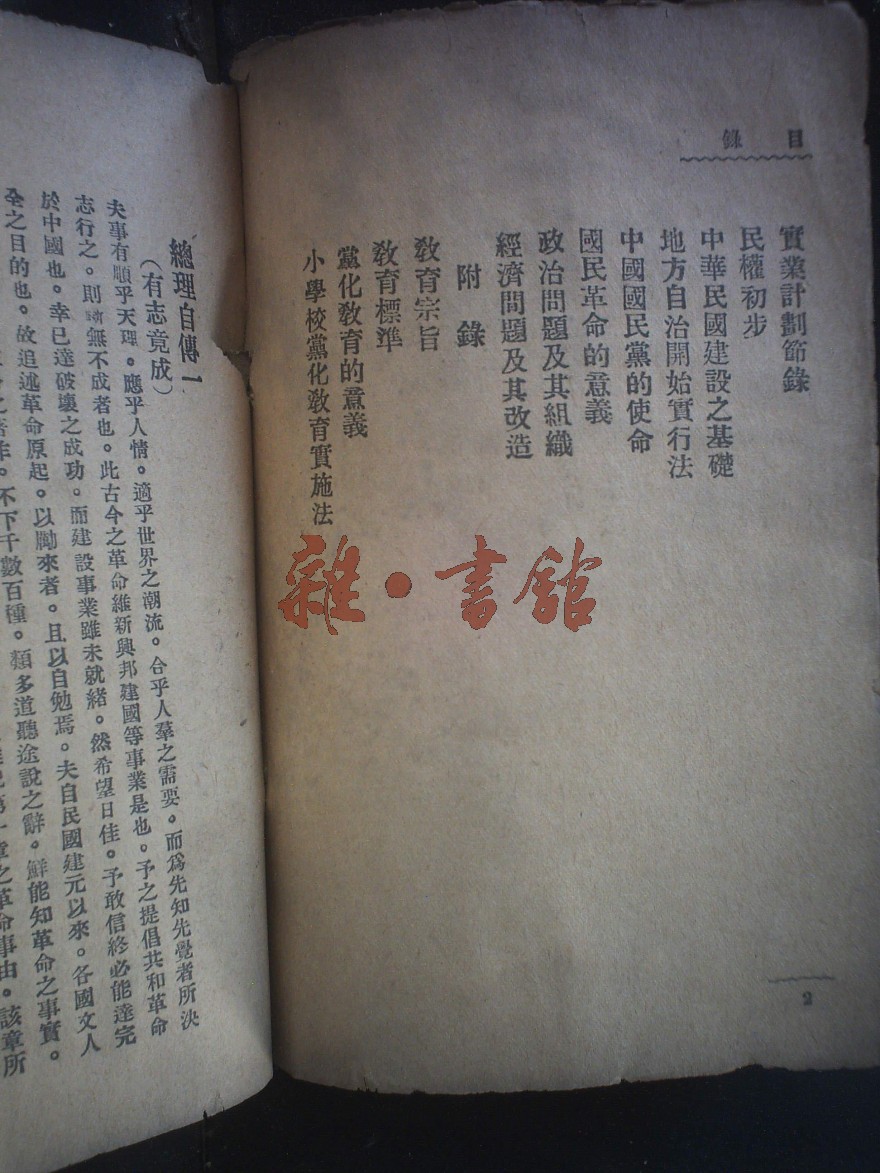 目錄
實業計劃節錄
民權初步
中華民國建設之基礎
地方自治開始實行法
中國國民黨的使命
國民革命的意義
政治問題及其組織
經濟問題及其改造
附錄
教育宗旨
教育標準
黨化教育的意義
小學校黨化教育實施法
2
雜·書館
總理自傳一
(有志竟成)
夫事有順乎天理。應乎人情。適乎世界之潮流。合乎人羣之需要。而爲先知先覺者所決
志行之。則斷無不成者也。此古今之革命維新興邦建國等事業是也。予之提倡共和革命
於中國也。幸已達破壞之成功。而建設事業雖未就緒。然希望日佳。予敢信終必能達完
全之目的也。故追述革命原起。以勵來者。且以自勉焉。夫自民國建元以來。各國文人
不下千數百種。類多道聽途說之辭。鮮能知革命之事實。
第一章之革命事由。該章所